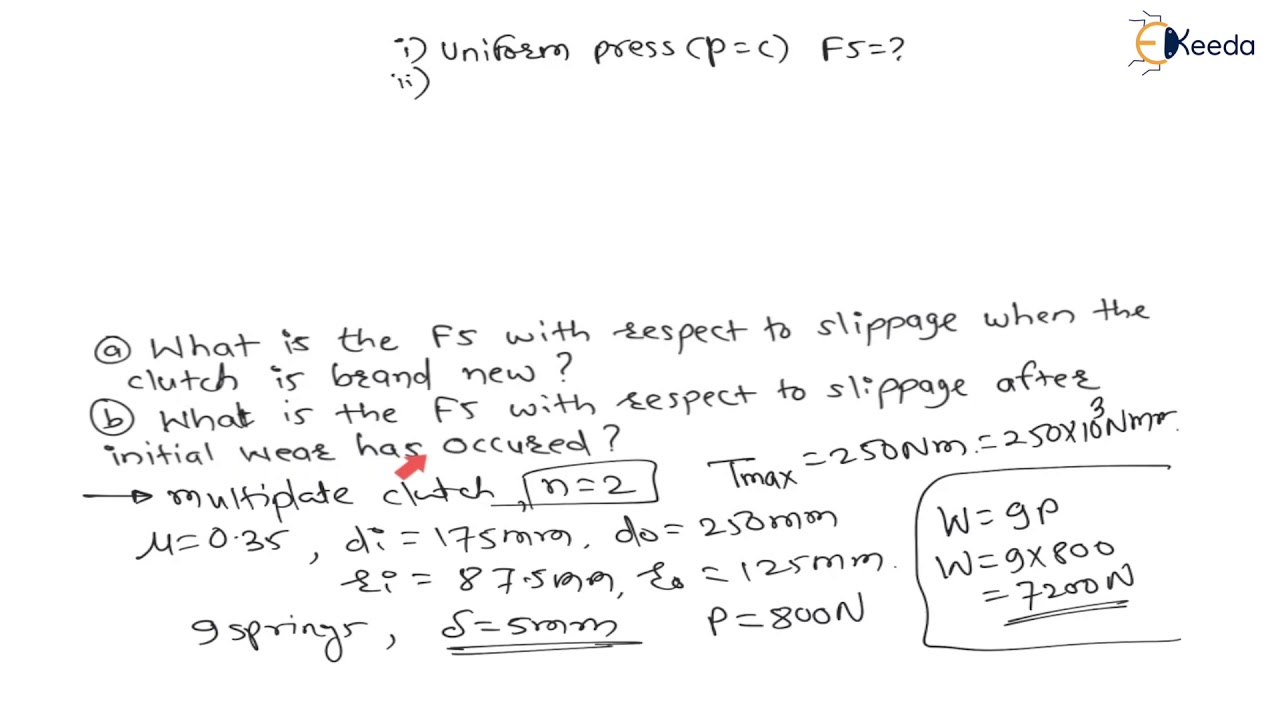 i) Uniform press (p=c) FS=?
ii)
EKeeda
ⓐ What is the FS with respect to slippage when the
clutch is brand new?
ⓑ What is the FS with respect to slippage after
initial wear has occured?
→ multiplate clutch, n=2
Tmax = 250Nm = 250×10³Nmm.
μ=0.35, di = 175mm, do = 250mm
ri = 87.5mm, ro = 125mm.
9 springs, δ=5mm
P=800N
W=9P
W=9×800
=7200N